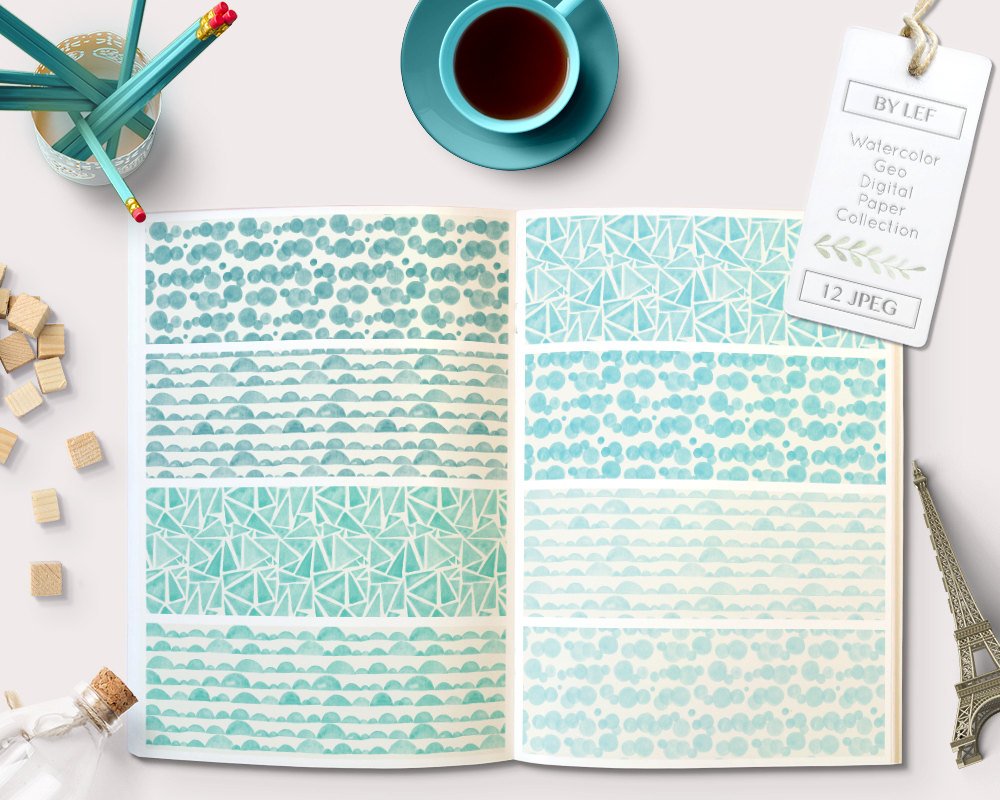 BY LEF
Watercolor
Geo
Digital
Paper
Collection
12 JPEG